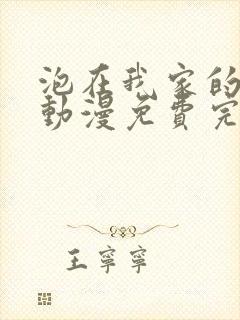 泡在我家的
動漫免費完
王寧寧